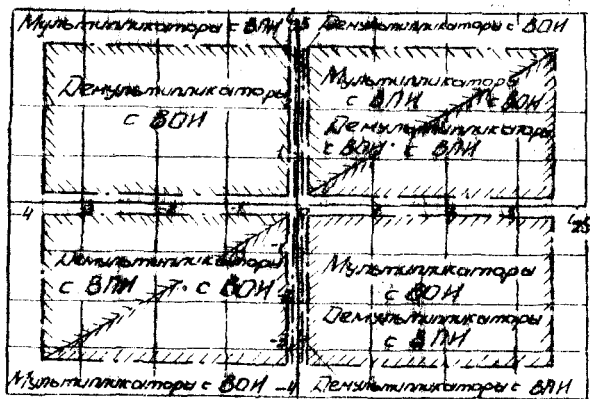 Мультипликаторы с ВПИ
Демультипликаторы с ВОИ
Демультипликаторы
с ВОИ
Мультипликаторы
с ВПИ с ВОИ
Демультипликаторы
с ВОИ с ВПИ
4
Демультипликаторы
с ВПИ с ВОИ
Мультипликаторы
с ВОИ
Демультипликаторы
с ВПИ
Мультипликаторы с ВОИ
-4
Демультипликаторы с ВПИ